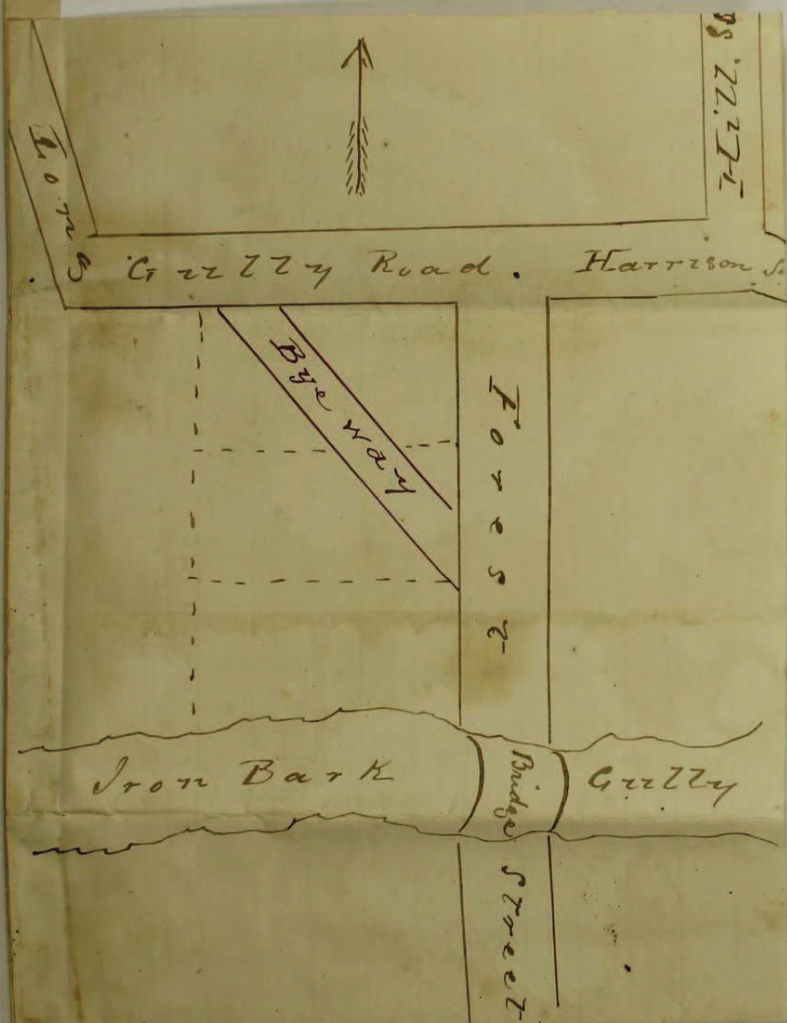 Long Gully Road.
Harrison
Bye way
Forest
Iron Bark
Bridge
Gully
Street